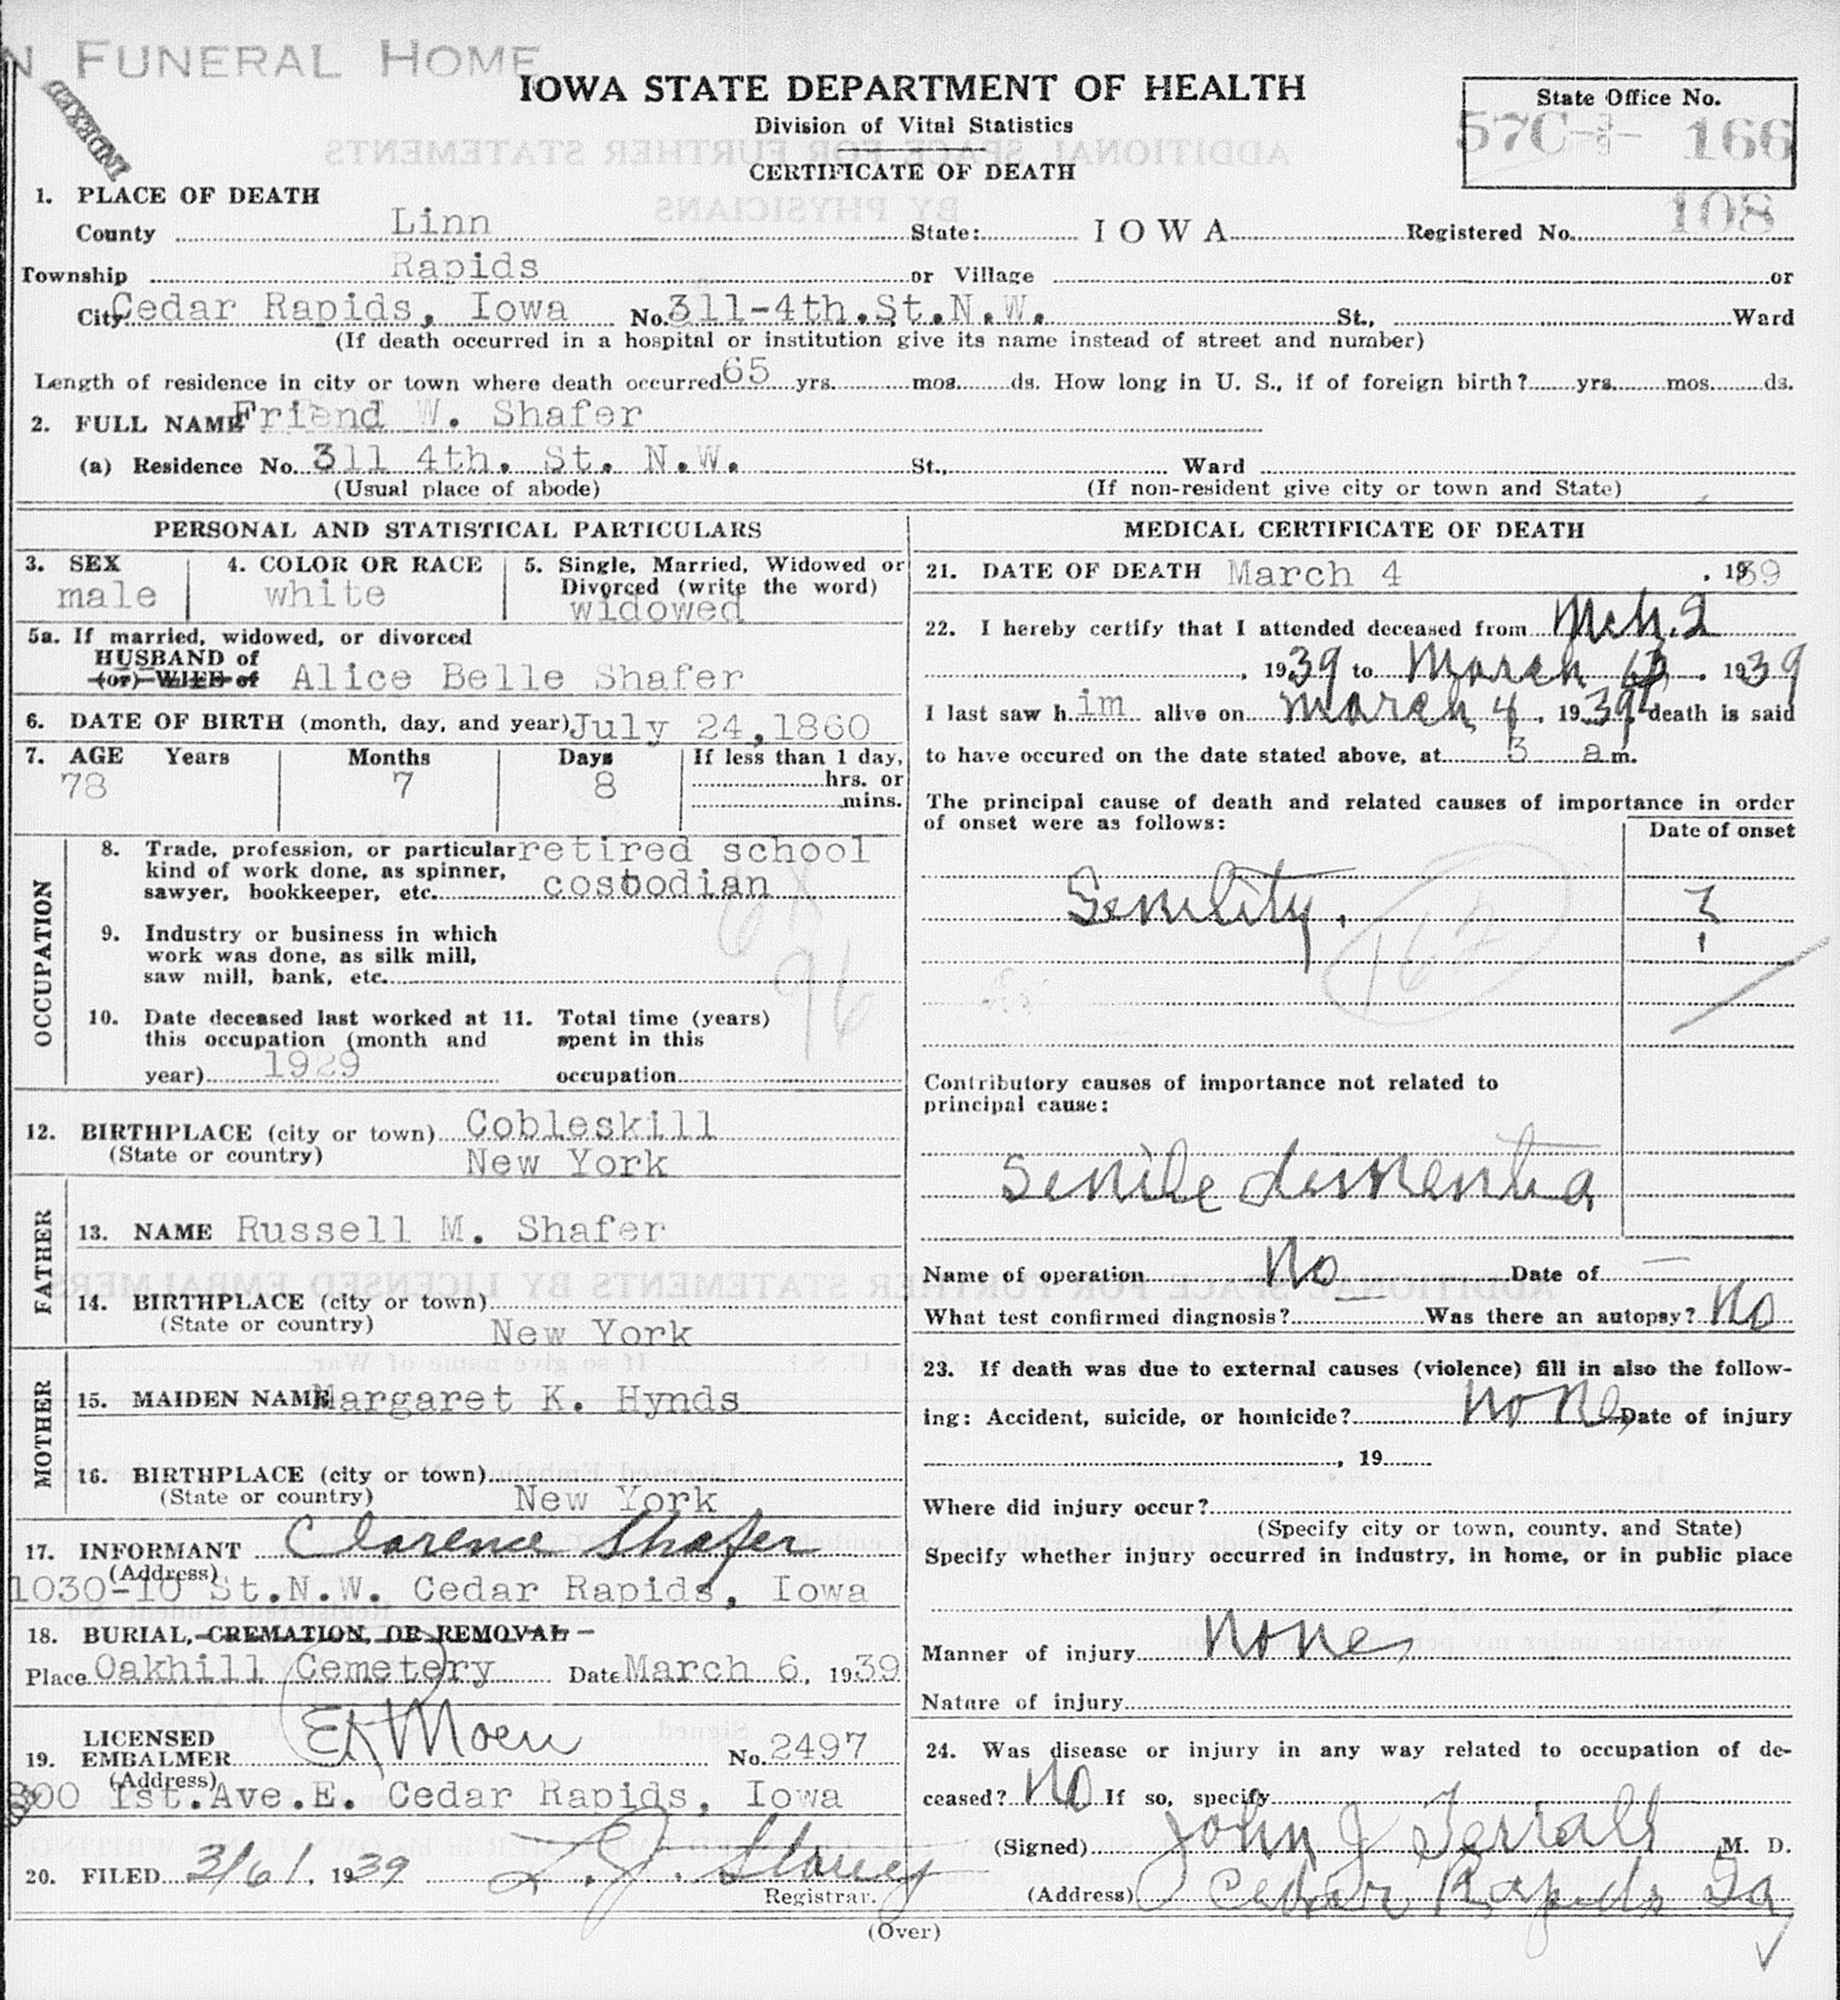 N FUNERAL HOME
INDEXED
IOWA STATE DEPARTMENT OF HEALTH
Division of Vital Statistics
CERTIFICATE OF DEATH
State Office No.
57C- 166
108
1. PLACE OF DEATH
County Linn State: IOWA Registered No.
Township Rapids or Village or
City Cedar Rapids, Iowa No. 311-4th.St.N.W. St., Ward
(If death occurred in a hospital or institution give its name instead of street and number)
Length of residence in city or town where death occurred 65 yrs. mos. ds. How long in U. S., if of foreign birth? yrs. mos. ds.
2. FULL NAME Friend W. Shafer
(a) Residence No. 311 4th. St. N.W. St., Ward
(Usual place of abode) (If non-resident give city or town and State)
PERSONAL AND STATISTICAL PARTICULARS
3. SEX male
4. COLOR OR RACE white
5. Single, Married, Widowed or
Divorced (write the word)
widowed
5a. If married, widowed, or divorced
HUSBAND of
(or) WIFE of Alice Belle Shafer
6. DATE OF BIRTH (month, day, and year) July 24,1860
7. AGE Years Months Days If less than 1 day,
78 7 8 hrs. or
mins.
OCCUPATION
8. Trade, profession, or particular retired school
kind of work done, as spinner,
sawyer, bookkeeper, etc. costodian
9. Industry or business in which
work was done, as silk mill,
saw mill, bank, etc.
96
10. Date deceased last worked at 11. Total time (years)
this occupation (month and spent in this
year) 1929 occupation
12. BIRTHPLACE (city or town) Cobleskill
(State or country) New York
FATHER
13. NAME Russell M. Shafer
14. BIRTHPLACE (city or town)
(State or country) New York
MOTHER
15. MAIDEN NAME Margaret K. Hynds
16. BIRTHPLACE (city or town)
(State or country) New York
17. INFORMANT Clarence Shafer
(Address)
1030-10 St.N.W. Cedar Rapids, Iowa
18. BURIAL, CREMATION, OR REMOVAL
Place Oakhill Cemetery Date March 6, 1939
19. LICENSED
EMBALMER Moen No. 2497
(Address)
800 1st.Ave.E. Cedar Rapids, Iowa
20. FILED 3/6/, 1939
Registrar.
MEDICAL CERTIFICATE OF DEATH
21. DATE OF DEATH March 4, 1939
22. I hereby certify that I attended deceased from Mch. 2
, 1939 to March , 1939
I last saw him alive on March 4, 1939, death is said
to have occured on the date stated above, at 3 a m.
The principal cause of death and related causes of importance in order
of onset were as follows:
Date of onset
Senility. ?
162
Contributory causes of importance not related to
principal cause:
Senile dementia
Name of operation No Date of —
What test confirmed diagnosis? — Was there an autopsy? No
23. If death was due to external causes (violence) fill in also the follow-
ing: Accident, suicide, or homicide? none, Date of injury
, 19
Where did injury occur?
(Specify city or town, county, and State)
Specify whether injury occurred in industry, in home, or in public place
Manner of injury None
Nature of injury
24. Was disease or injury in any way related to occupation of de-
ceased? No If so, specify
(Signed) John J Terrall M. D.
(Address) Cedar Rapids Ia
(Over)